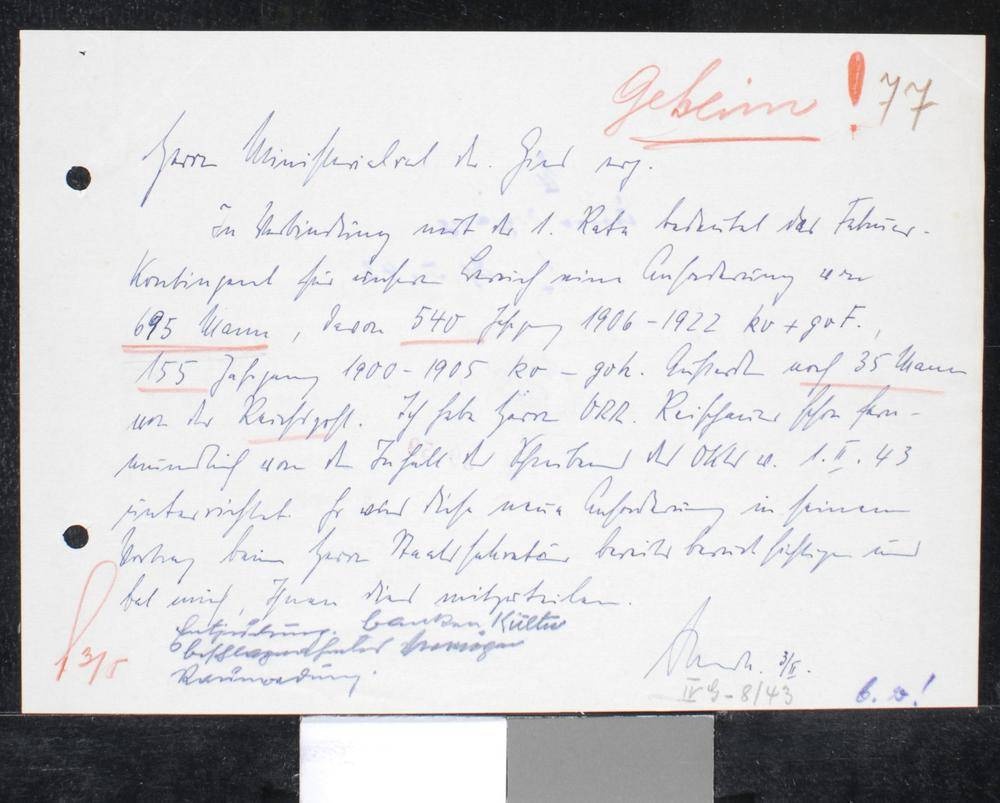 Geheim! 77
Herrn Ministerialrat Dr. erg.
In Verbindung mit der 1. Rate bedeutet das Februar-
Kontingent für unseren Bereich eine Anforderung von
695 Mann, davon 540 Jahrgang 1906-1922 kv + gvF.,
155 Jahrgang 1900-1905 kv - gvH. Außerdem noch 35 Mann
von der Reichspost. Ich habe Herrn ORR. Reischauer schon fern-
mündlich von dem Inhalt des Schreibens des OKW v. 1.II.43
unterrichtet. Er wird diese neue Anforderung in seinem
Vortrag beim Herrn Staatssekretär bereits berücksichtigen und
bat mich, Ihnen dies mitzuteilen.
Banken, Kultur
beschlagnahmtes Vermögen
3/II.
3/5
IV b - 8/43
b. w!